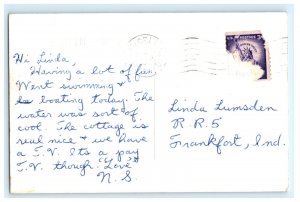 Hi Linda,
Having a lot of fun.
Went swimming +
is boating today. The
water was sort of
cool. The cottage is
real nice + we have
a T.V. Its a pay
T.V. though. Love
N. S.
Linda Lumsden
R R. 5
Frankfort, Ind.